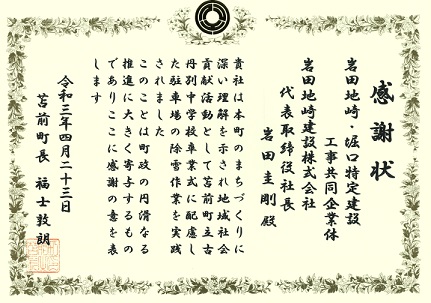 感謝状
岩田地崎・堀口特定建設
工事共同企業体
岩田地崎建設株式会社
代表取締役社長
岩田圭剛殿
貴社は本町のまちづくりに
深い理解を示され地域社会
貢献活動として苫前町立古
丹別中学校卒業式に配慮し
た駐車場の除雪作業を実践
されました
このことは町政の円滑なる
推進に大きく寄与するもの
でありここに感謝の意を表
します
令和三年四月二十三日
苫前町長 福士敦朗